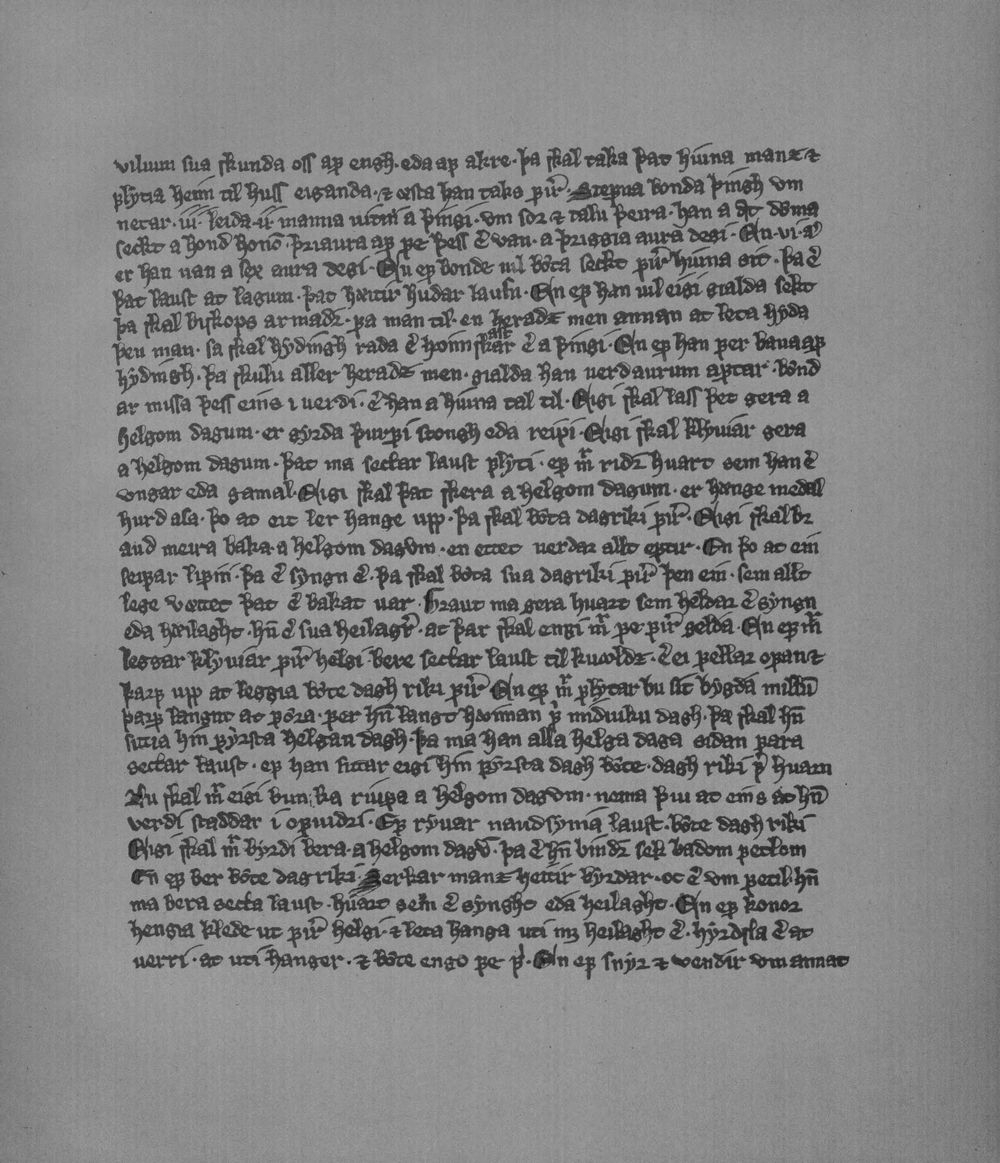 viluum sua skunda oss af engh· eda af akre· þa skal taka þat hiuna manz ⁊
flytia heim til huss eiganda·⁊ œsta han taks firi· Stefna bonda þingh vm
netar· iii· leida· ii· manna uitni a þingi· vm sor ⁊ talu þeira· han a at dõma
seckt a hond hono᷎· þriaura af fe þess er van· a þriggia aura degi· En· vi· a
er han uan a sex aura degi· En ef bonde uil bõta seckt firi hiuna sit· þa er
þat laust at lagum· þat hæitir hudar lausn· En ef han uil eigi gialda sekt
þa skal biskops armadr· fa man til· en heradz men annan at leta hyda
þen man· sa skal hydingh rada er hoim skar er a þingi· En ef han fer bana af
hydingh· þa skulu aller heradz men· gialda han uerdaurum aftar· bõnd
ar missa þess eins i uerdi· er han a hiuna tal til· Eigi skal lass þet gera a
helgom dagum· er gyrda þurfi stongh eda reipi· Eigi skal klyuiar gera
a helgom dagum· þat ma seckar laust flyti· ef m̄ ridr huart sem han er
vngar eda gamal· Eigi skal þat skera a helgom dagum· er hange medal
hurd asa· þo at eit ler hange upp· þa skal bõta dagriki firi· Eigi skal br
aud meira baka· a helgom dagum· en ettet uerdar allt eftir· En þo at ein
leifar lifin· þa er syngn er· þa skal bõta sua dagriki firi þen ein· sem allt
lege vættet þat er bakat uar· Braut ma gera huart sem heldar er syngn
eda hæilaght· hn̄ er sua heilagr· at þar skal engi m̄ fe firi gelda· En ef m̄
leggar klyuiar firi helgi· bere seckar laust til kuældz· er ei fellar ofan ⁊
þarf upp at leggia bõte dagh riki firi En ef m̄ flytar bu sit bygda millū
þarf langut at fõra· fer hn̄ langt hæiman f᷎ midiuku dagh· þa skal hn̄
sitia hin fyrsta helgan dagh· þa ma han alla helga daga sidan fara
seckar laust· ef han sittar eigi hin fyrsta dagh bõte· dagh riki f᷎ huarn
Nu skal m̄ eigi bun ka riufa a helgom dagum· nema þui at eins at hn̄
verdi staddar i ofuidri· Ef ryuar naudsynia laust· bõte dagh riki
Eigi skal m̄ byrdi bera· a helgom dagū· þa er hn̄ bindr sek badom fetlom
En ef ber bõte dagriki· Serkar manz heitir byrdar· oc er vm fetil· hn̄
ma bera secta laust· huart sem er synght eda heilaght· En ef konor
hengia klede ut firi helgi· ⁊ leta hanga uti mz heilaght er· hyrdsla er at
uerri· at uti hanger· ⁊ bõte engo fe f᷎· En ef snyr ⁊ vendir vm annat